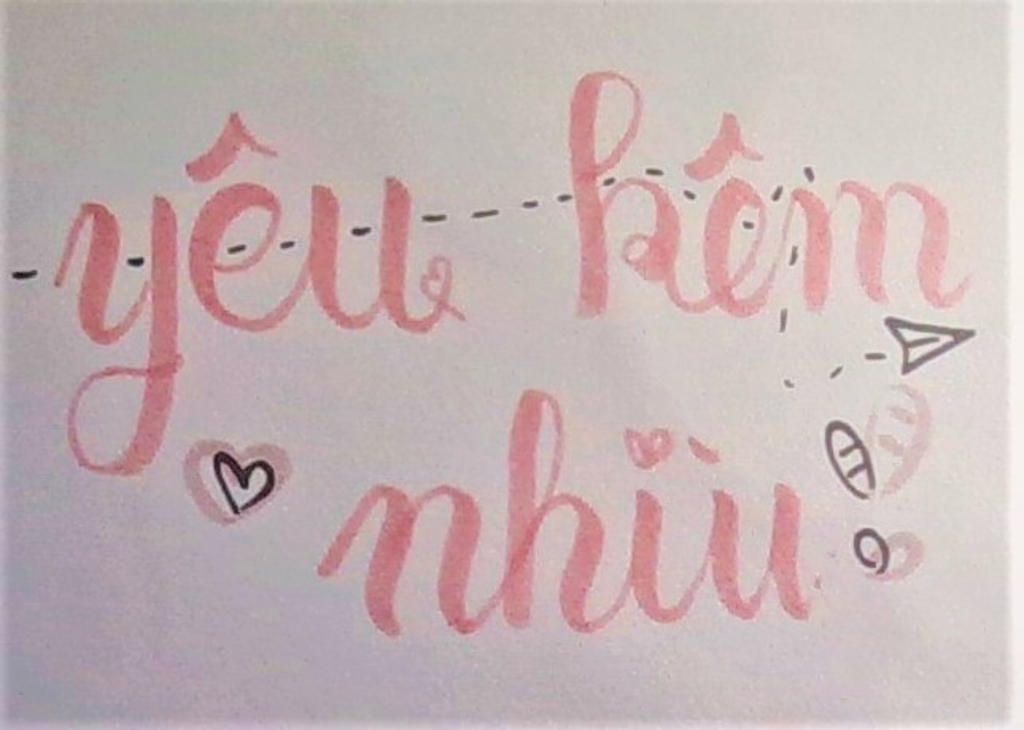 yêu kêm
nhìu